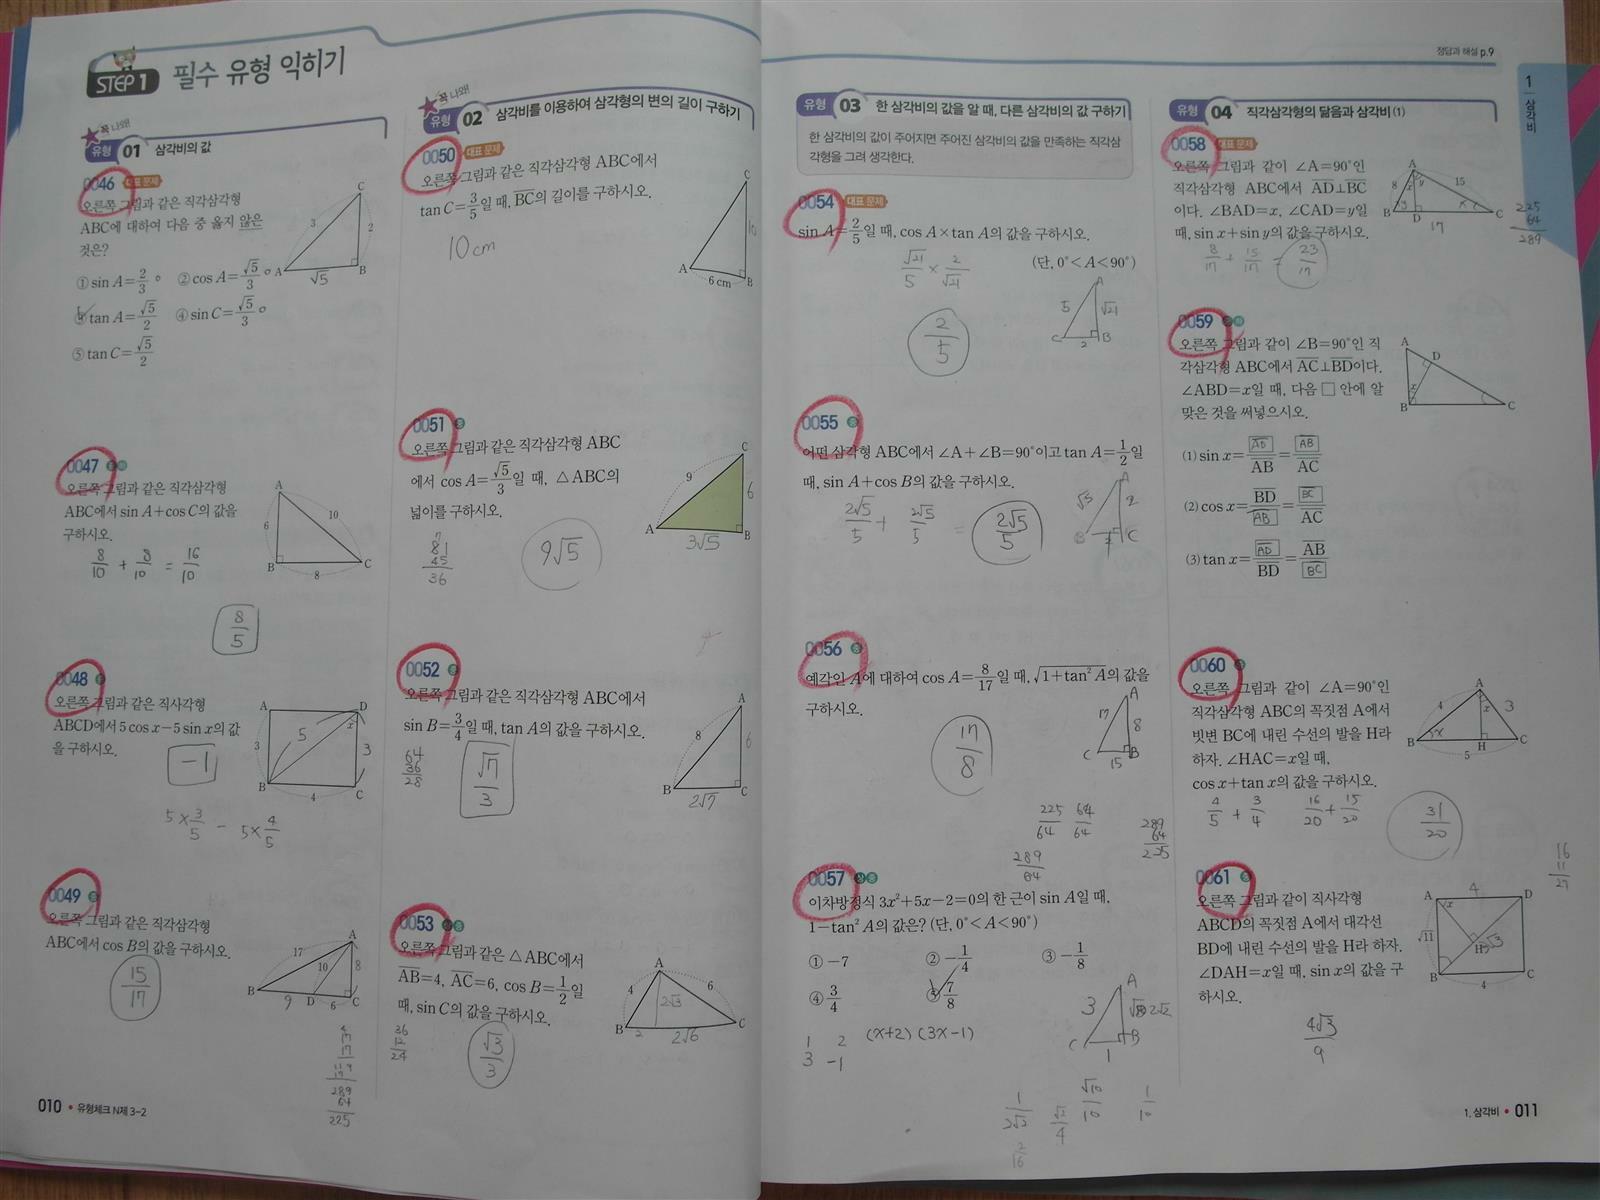 STEP 1 필수 유형 익히기
꼭 나와!
유형 01 삼각비의 값
0046 대표 문제
오른쪽 그림과 같은 직각삼각형
ABC에 대하여 다음 중 옳지 않은
것은?
① sin A=2/3 ② cos A=√5/3
③ tan A=√5/2 ④ sin C=√5/3
⑤ tan C=√5/2
C
3
2
A
√5
B
0047 중하
오른쪽 그림과 같은 직각삼각형
ABC에서 sin A+cos C의 값을
구하시오.
8/10 + 8/10 = 16/10
8/5
A
6
10
B
8
C
0048 중
오른쪽 그림과 같은 직사각형
ABCD에서 5 cos x-5 sin x의 값
을 구하시오.
-1
5×3/5 - 5×4/5
A
D
x
5
3
3
B
4
C
0049 중
오른쪽 그림과 같은 직각삼각형
ABC에서 cos B의 값을 구하시오.
15/17
A
17
10
8
B
9
D
6
C
289
64
225
010 • 유형체크 N제 3-2
꼭 나와!
유형 02 삼각비를 이용하여 삼각형의 변의 길이 구하기
0050 대표 문제
오른쪽 그림과 같은 직각삼각형 ABC에서
tan C=3/5일 때, BC의 길이를 구하시오.
10cm
C
10
A
6 cm
B
0051 중
오른쪽 그림과 같은 직각삼각형 ABC
에서 cos A=√5/3일 때, △ABC의
넓이를 구하시오.
9√5
81
45
36
C
9
6
A
3√5
B
0052 중
오른쪽 그림과 같은 직각삼각형 ABC에서
sin B=3/4일 때, tan A의 값을 구하시오.
64
36
28
√7/3
A
8
6
B
2√7
C
0053 상중
오른쪽 그림과 같은 △ABC에서
AB=4, AC=6, cos B=1/2일
때, sin C의 값을 구하시오.
36
12
24
√3/3
A
4
2√3
6
B
2
2√6
C
정답과 해설 p.9
유형 03 한 삼각비의 값을 알 때, 다른 삼각비의 값 구하기
한 삼각비의 값이 주어지면 주어진 삼각비의 값을 만족하는 직각삼
각형을 그려 생각한다.
0054 대표 문제
sin A=2/5일 때, cos A×tan A의 값을 구하시오.
(단, 0°<A<90°)
√21/5 × 2/√21
2/5
A
5
√21
C
2
B
0055 중
어떤 삼각형 ABC에서 ∠A+∠B=90°이고 tan A=1/2일
때, sin A+cos B의 값을 구하시오.
2√5/5 + 2√5/5 = 2√5/5
A
√5
2
B
C
0056 중
예각인 A에 대하여 cos A=8/17일 때, √1+tan² A의 값을
구하시오.
17/8
A
17
8
C
15
B
225/64 64/64
289/64
289
64
225
0057 상중
이차방정식 3x²+5x-2=0의 한 근이 sin A일 때,
1-tan² A의 값은? (단, 0°<A<90°)
① -7 ② -1/4 ③ -1/8
④ 3/4 ⑤ 7/8
1 2
3 -1
(x+2) (3x-1)
A
3
√8 2√2
C
1
B
1/2√2
√2/4
√10/10
1/10
2/16
유형 04 직각삼각형의 닮음과 삼각비 (1)
0058 대표 문제
오른쪽 그림과 같이 ∠A=90°인
직각삼각형 ABC에서 AD⊥BC
이다. ∠BAD=x, ∠CAD=y일
때, sin x+sin y의 값을 구하시오.
8/17 + 15/17 = 23/17
A
8
x
y
15
B
y
D
x
C
17
225
64
289
0059 중하
오른쪽 그림과 같이 ∠B=90°인 직
각삼각형 ABC에서 AC⊥BD이다.
∠ABD=x일 때, 다음 □ 안에 알
맞은 것을 써넣으시오.
(1) sin x=AD/AB=AB/AC
(2) cos x=BD/AB=BC/AC
(3) tan x=AD/BD=AB/BC
A
D
x
B
C
0060 중
오른쪽 그림과 같이 ∠A=90°인
직각삼각형 ABC의 꼭짓점 A에서
빗변 BC에 내린 수선의 발을 H라
하자. ∠HAC=x일 때,
cos x+tan x의 값을 구하시오.
4/5 + 3/4 16/20 + 15/20
31/20
A
4
x
3
B
x
H
C
5
16
11
27
0061 중
오른쪽 그림과 같이 직사각형
ABCD의 꼭짓점 A에서 대각선
BD에 내린 수선의 발을 H라 하자.
∠DAH=x일 때, sin x의 값을 구
하시오.
4√3/9
4
A
D
x
√11
H
3√3
B
4
C
1
삼각비
1. 삼각비 • 011